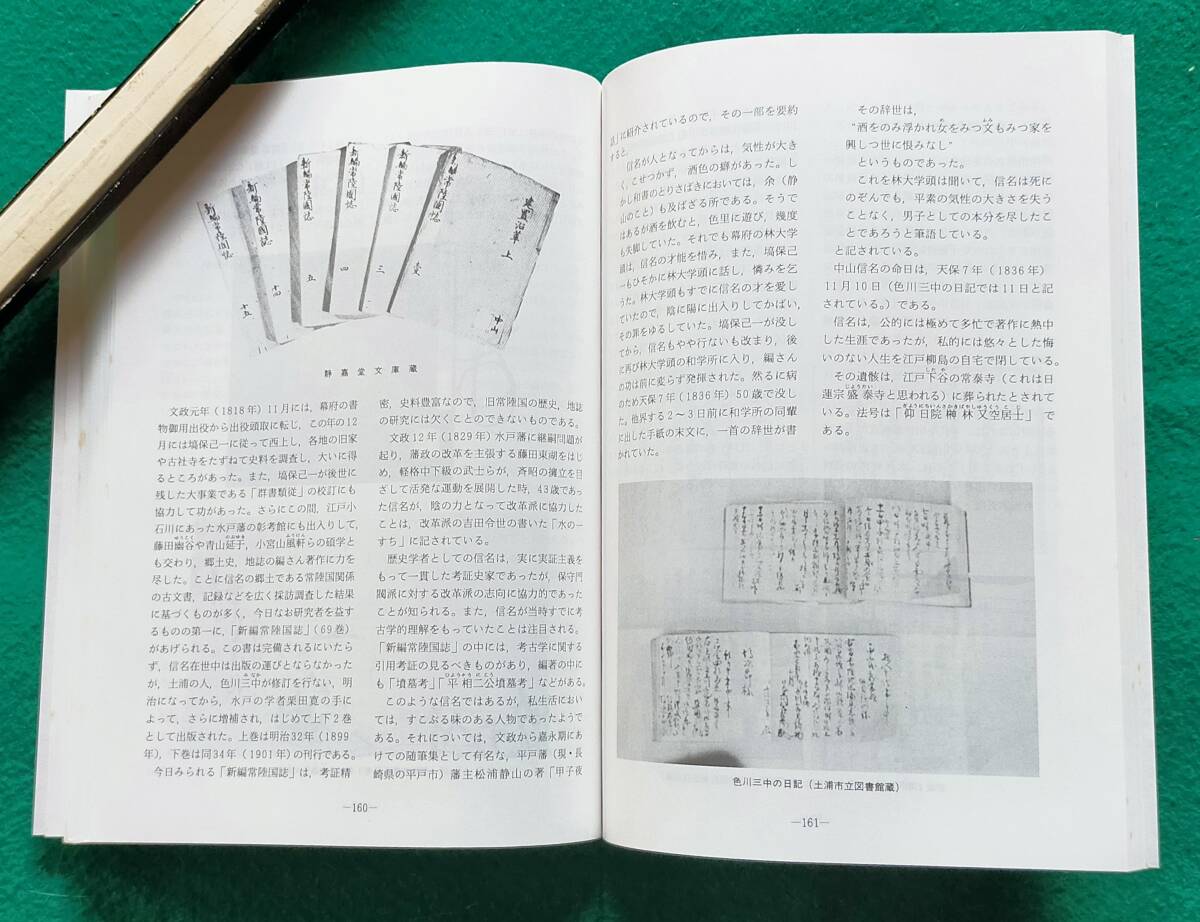 新編常陸國誌
十五
新編常陸國誌
十四
新編常陸國誌
五
新編常陸國誌
四
新編常陸國誌
三
新編常陸國誌
壹
建置沿革 上
中山
静嘉堂文庫蔵
文政元年(1818年)11月には,幕府の書
物御用出役から出役頭取に転じ,この年の12
月には塙保己一に従って西上し,各地の旧家
や古社寺をたずねて史料を調査し,大いに得
るところがあった。また,塙保己一が後世に
残した大事業である「群書類従」の校訂にも
協力して功があった。さらにこの間,江戸小
石川にあった水戸藩の彰考館にも出入りして,
藤田幽谷や青山延于,小宮山風軒らの碩学と
も交わり,郷土史,地誌の編さん著作に力を
尽した。ことに信名の郷土である常陸国関係
の古文書,記録などを広く採訪調査した結果
に基づくものが多く,今日なお研究者を益す
るものの第一に,「新編常陸国誌」(69巻)
があげられる。この書は完備されるにいたら
ず,信名在世中は出版の運びとならなかった
が,土浦の人,色川三中が修訂を行ない,明
治になってから,水戸の学者栗田寛の手に
よって,さらに増補され,はじめて上下2巻
として出版された。上巻は明治32年(1899
年),下巻は同34年(1901年)の刊行である。
今日みられる「新編常陸国誌」は,考証精
密,史料豊富なので,旧常陸国の歴史,地誌
の研究には欠くことのできないものである。
文政12年(1829年)水戸藩に継嗣問題が
起り,藩政の改革を主張する藤田東湖をはじ
め,軽格中下級の武士らが,斉昭の擁立を目
ざして活発な運動を展開した時,43歳であっ
た信名が,陰の力となって改革派に協力した
ことは,改革派の吉田令世の書いた「水の一
すち」に記されている。
歴史学者としての信名は,実に実証主義を
もって一貫した考証史家であったが,保守門
閥派に対する改革派の志向に協力的であった
ことが知られる。また,信名が当時すでに考
古学的理解をもっていたことは注目される。
「新編常陸国誌」の中には,考古学に関する
引用考証の見るべきものがあり,編著の中に
も「墳墓考」「平相二公墳墓考」などがある。
このような信名ではあるが,私生活におい
ては,すこぶる味のある人物であったようで
ある。それについては,文政から嘉永期にあ
けての随筆集として有名な,平戸藩(現・長
崎県の平戸市)藩主松浦静山の著「甲子夜
—160—
話」に紹介されているので,その一部を要約
すると,
信名が人となってからは,気性が大き
く,こせつかず,酒色の癖があった。し
かし和書のとりさばきにおいては,余(静
山のこと)も及ばざる所である。そうで
はあるが酒を飲むと,色里に遊び,幾度
も失脚していた。それでも幕府の林大学
頭は,信名の才能を惜み,また,塙保己
一もひそかに林大学頭に話し,憐みを乞
うた。林大学頭もすでに信名の才を愛し
ていたので,陰に陽に出入りしてかばい,
その罪をゆるしていた。塙保己一が没し
てから,信名もやや行ないも改まり,後
に再び林大学頭の和学所に入り,編さん
の功は前に変らず発揮された。然るに病
のため天保7年(1836年)50歳で没し
た。他界する2〜3日前に和学所の同輩
に出した手紙の末文に,一首の辞世が書
かれていた。
その辞世は,
“酒をのみ浮かれ女をみつ文もみつ家を
興しつ世に恨みなし”
というものであった。
これを林大学頭は聞いて,信名は死に
のぞんでも,平素の気性の大きさを失う
ことなく,男子としての本分を尽したこ
とであろうと筆語している。
と記されている。
中山信名の命日は,天保7年(1836年)
11月10日(色川三中の日記では11日と記
されている。)である。
信名は,公的には極めて多忙で著作に熱中
した生涯であったが,私的には悠々とした悔
いのない人生を江戸柳島の自宅で閉している。
その遺骸は,江戸下谷の常泰寺(これは日
蓮宗盛泰寺と思われる)に葬られたとされて
いる。法号は「仰日院榊林又空居士」で
ある。
色川三中の日記(土浦市立図書館蔵)
—161—